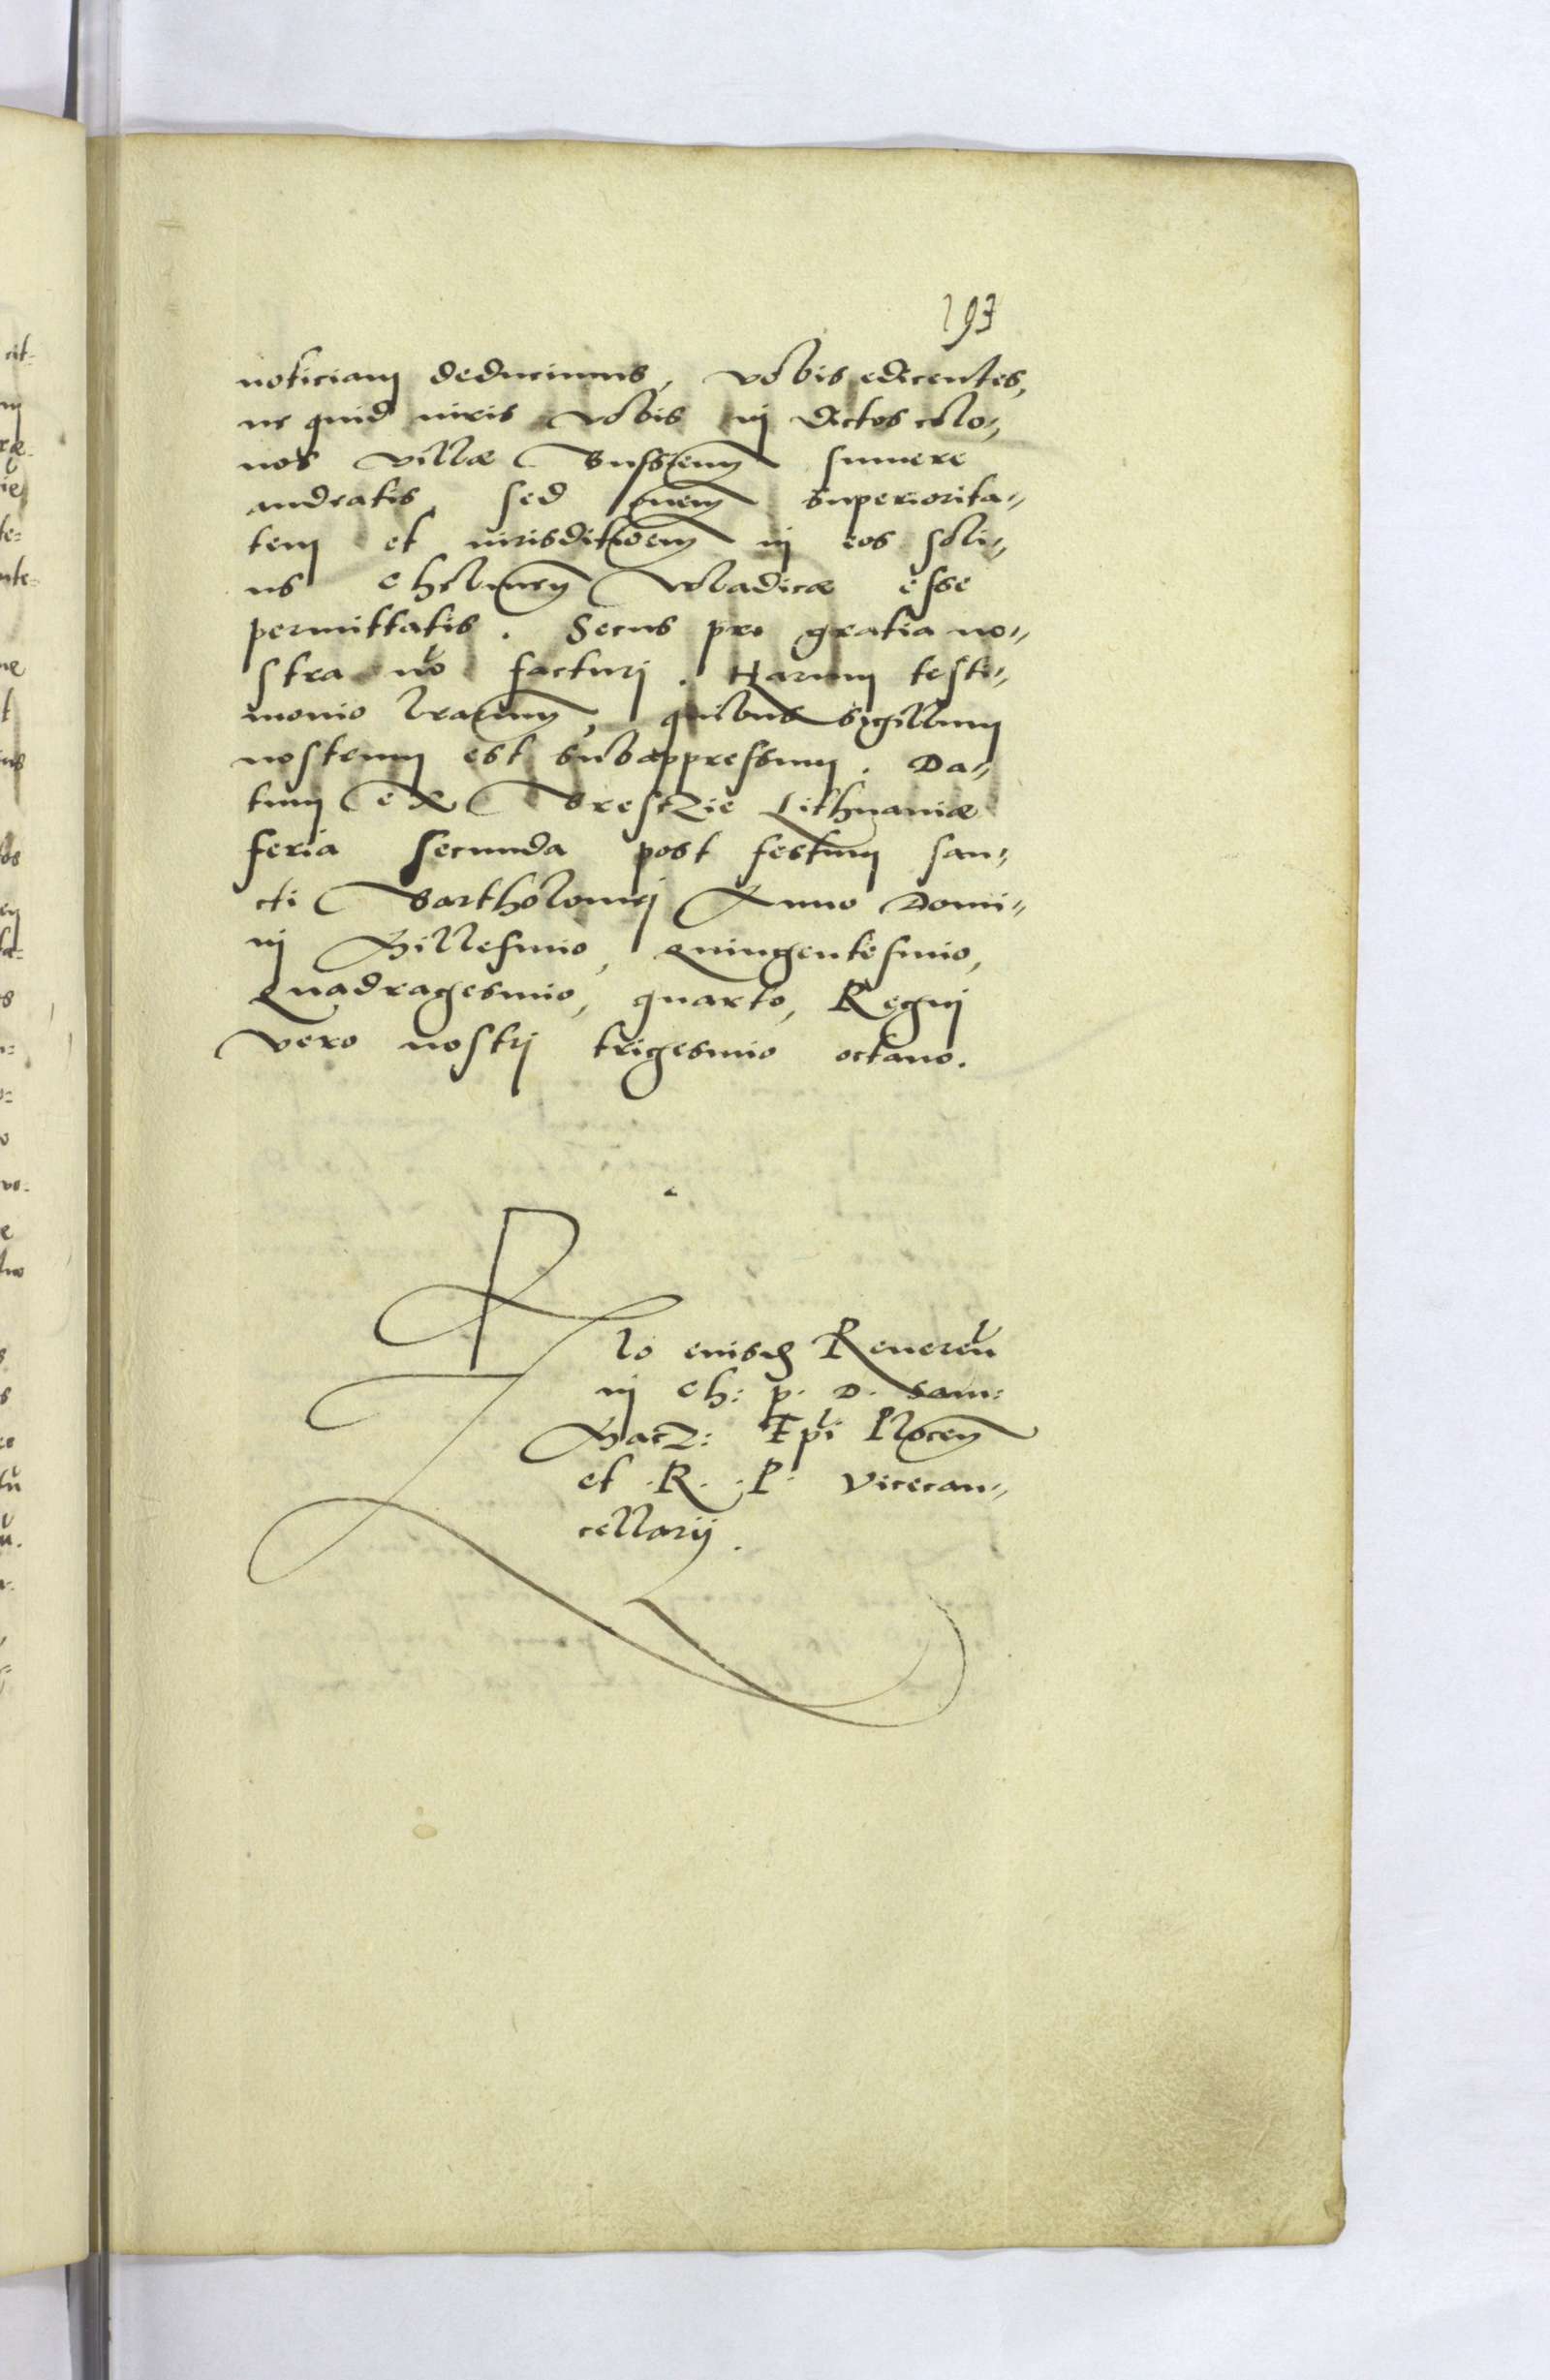 193
noticiam deducimus, vobis edicentes,
ne quid iuris vobis in dictos colo-
nos villæ Bussen sumere
audeatis, sed omnem superiorita-
tem et iurisditioem in eos soli-
us Chelmen Vladicæ esse
permittatis. Secus pro gratia no-
stra no facturi. Harum testi-
monio lrarum, quibus sigillum
nostrum est subappressum. Da-
tum ex Brestzie Lithuaniæ
feria secunda post festum san-
cti Bartholomei Anno Domi-
ni Millesimo, Quingentesimo,
Quadragesimo, quarto, Regni
vero nostri trigesimo octavo.
Rlo eiusd Reveren
in Ch: p. D. Sam:
Macz: Epi Plocen
et R. P. Vicecan-
cellarij.